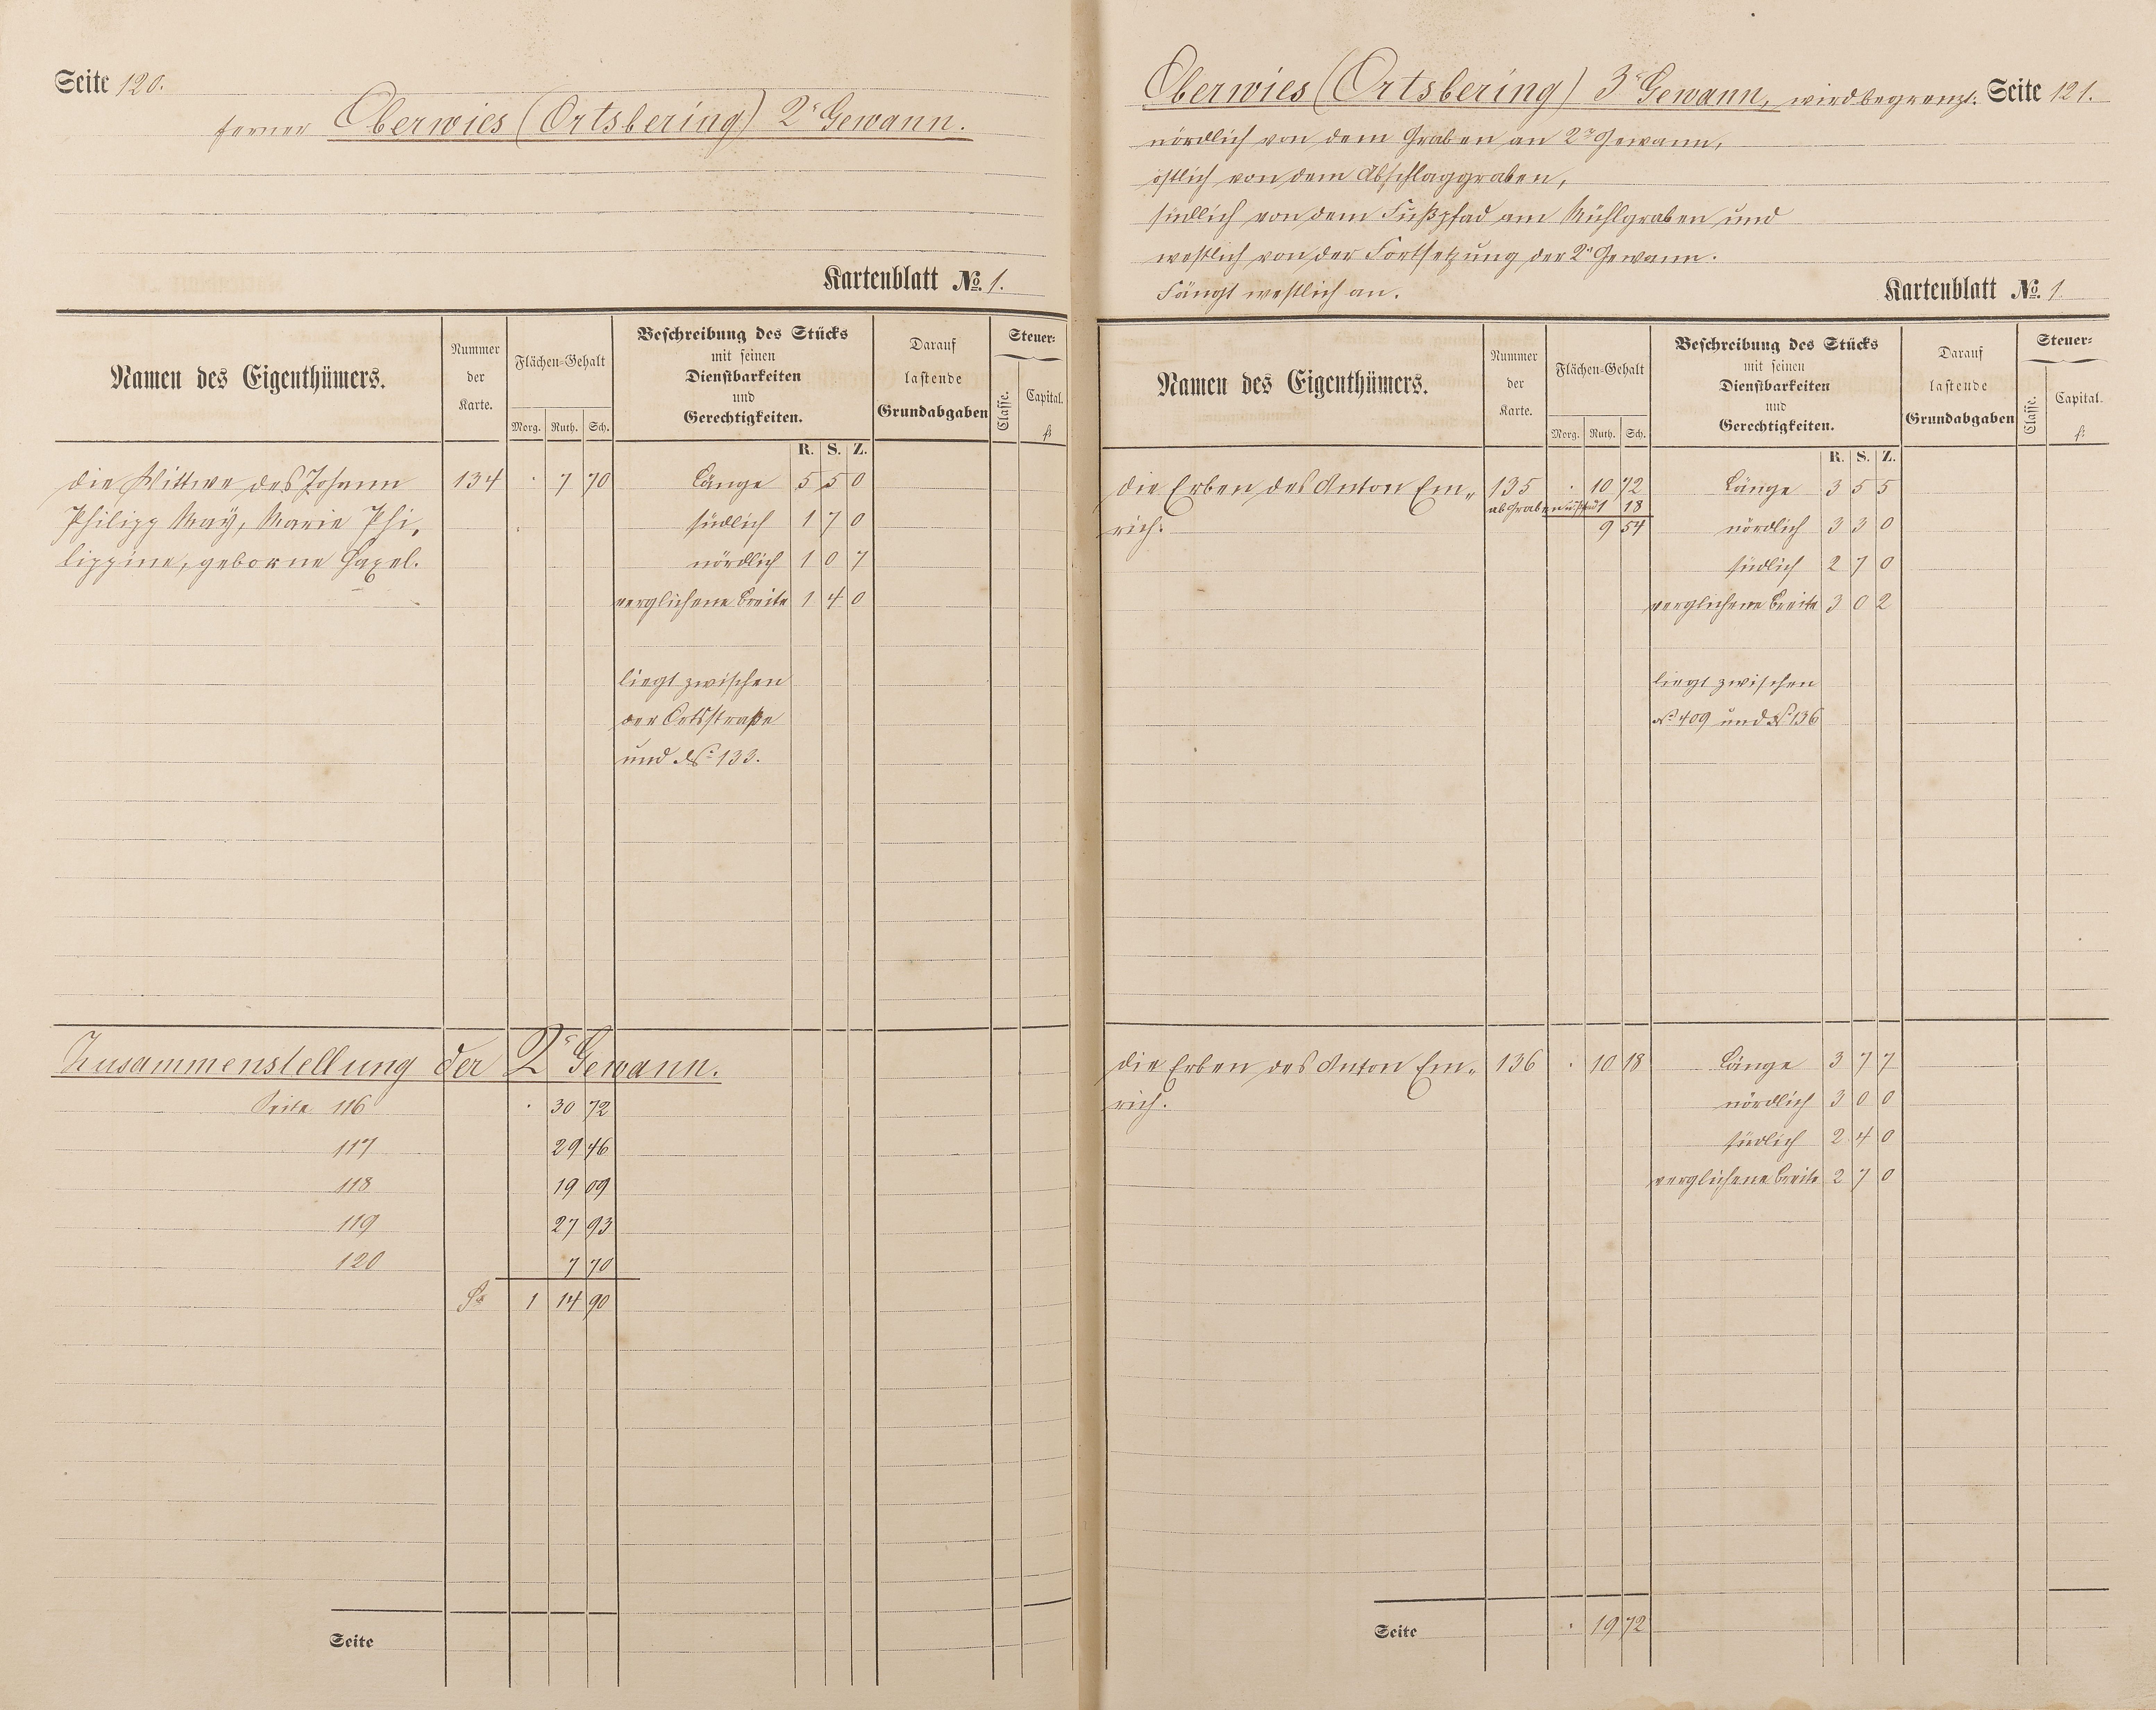 Seite 120.
ferner Oberwies (Ortsbering) 2r Gewann.
Kartenblatt No. 1.
Namen des Eigenthümers.
Nummer der Karte.
Flächen-Gehalt
Morg. Ruth. Sch.
Beschreibung des Stücks
mit seinen
Dienstbarkeiten
und
Gerechtigkeiten.
Darauf
lastende
Grundabgaben
Steuer:
Classe.
Capital.
fl.
R. S. Z.
die Wittwe des Johann 134 . 7 70 Länge 5 5 0
Philipp Maÿ, Marie Phi- südlich 1 7 0
lippine, geborne Hagel. nördlich 1 0 7
verglichene Breite 1 4 0
liegt zwischen
der Ortsstraße
und No. 133.
Zusammenstellung der 2r Gewann.
Seite 116 . 30 72
117 29 46
118 19 09
119 27 93
120 7 70
Sa 1 14 90
Seite
Oberwies (Ortsbering) 3r Gewann, wird begrenzt: Seite 121.
nördlich von dem Graben an 2r Gewann,
östlich von dem Abschlaggraben,
südlich von dem Fußpfad am Mühlgraben und
westlich von der Fortsetzung der 2r Gewann.
Fängt westlich an.
Kartenblatt No. 1.
Namen des Eigenthümers.
Nummer der Karte.
Flächen-Gehalt
Morg. Ruth. Sch.
Beschreibung des Stücks
mit seinen
Dienstbarkeiten
und
Gerechtigkeiten.
Darauf
lastende
Grundabgaben
Steuer:
Classe.
Capital.
fl.
R. S. Z.
die Erben des Anton Em- 135 . 10 72 Länge 3 5 5
ab Graben u. Pfad 1 18
rich. 9 54 nördlich 3 3 0
südlich 2 7 0
verglichene Breite 3 0 2
liegt zwischen
No. 409 und No. 136
die Erben des Anton Em- 136 . 10 18 Länge 3 7 7
rich. nördlich 3 0 0
südlich 2 4 0
verglichene Breite 2 7 0
Seite . 19 72